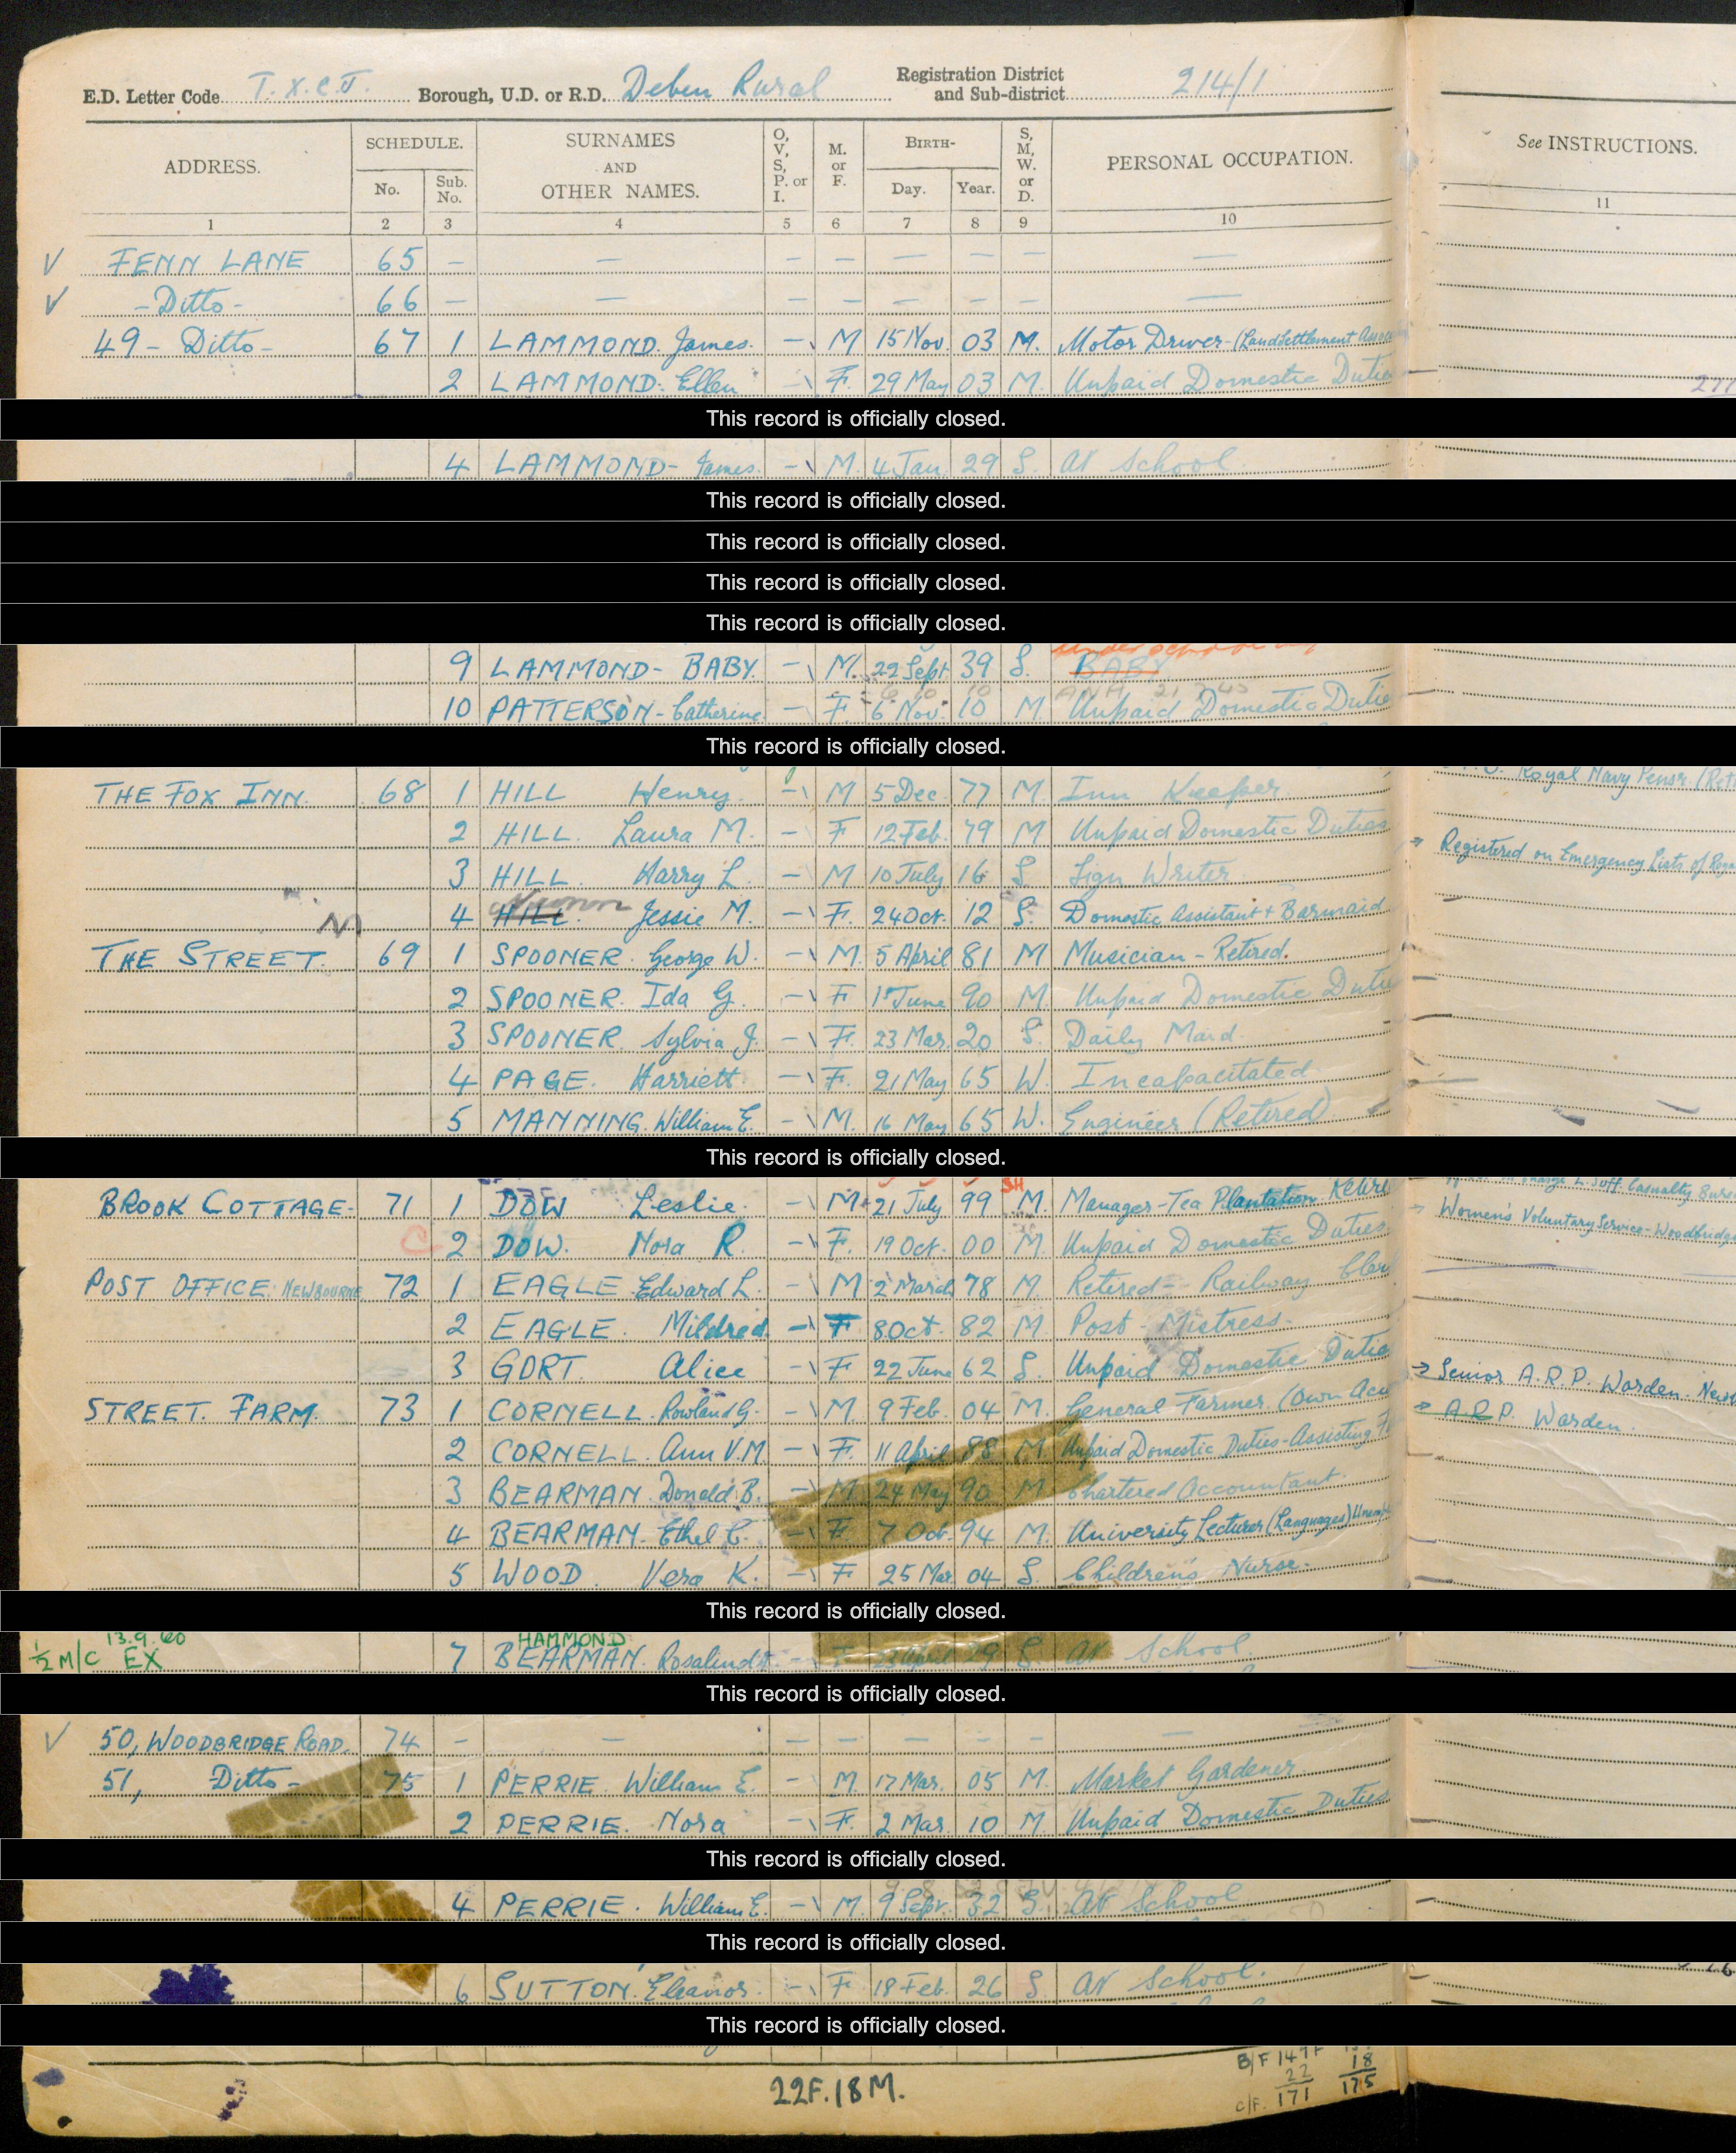 E.D. Letter Code T.X.C.J. Borough, U.D. or R.D. Deben Rural Registration District and Sub-district 214/1
ADDRESS. SCHEDULE. No. Sub. No. SURNAMES AND OTHER NAMES. O, V, S, P. or I. M. or F. BIRTH- Day. Year. S, M, W. or D. PERSONAL OCCUPATION. See INSTRUCTIONS.
1 2 3 4 5 6 7 8 9 10 11
√ FENN LANE 65 – – – – – – – –
√ - Ditto - 66 – – – – – – – –
49 - Ditto - 67 1 LAMMOND. James. – M 15 Nov. 03 M. Motor Driver - (Land Settlement
2 LAMMOND. Ellen – F. 29 May 03 M. Unpaid Domestic Duties
This record is officially closed.
4 LAMMOND - James. – M. 4 Jan. 29 S. At School
This record is officially closed.
This record is officially closed.
This record is officially closed.
This record is officially closed.
9 LAMMOND - BABY. – M. 22 Sept 39 S. BABY
10 PATTERSON - Catherine – F. 6 Nov. 10 M Unpaid Domestic Duties
This record is officially closed.
THE FOX INN. 68 1 HILL Henry. – M 5 Dec. 77 M. Inn Keeper Royal Navy Pensr.
2 HILL. Laura M. – F 12 Feb. 79 M Unpaid Domestic Duties
3 HILL. Harry L – M 10 July 16 S Sign Writer Registered on Emergency Lists of
4 HILL. Jessie M. – F. 24 Oct. 12 S. Domestic Assistant + Barmaid
THE STREET. 69 1 SPOONER. George W. – M. 5 April 81 M Musician - Retired.
2 SPOONER. Ida G. – F 1st June 90 M. Unpaid Domestic Duties
3 SPOONER. Sylvia J. – F. 23 Mar. 20 S. Daily Maid
4 PAGE. Harriett – F. 21 May 65 W. Incapacitated
5 MANNING. William E. – M. 16 May 65 W. Engineer (Retired)
This record is officially closed.
BROOK COTTAGE - 71 1 DOW Leslie. – M. 21 July 99 M. Manager - Tea Plantation Casualty
C 2 DOW. Nora R. – F. 19 Oct. 00 M. Unpaid Domestic Duties Women's Voluntary Service - Woodbridge
POST OFFICE. NEWBOURNE 72 1 EAGLE Edward L. – M 2 March 78 M. Retired - Railway
2 EAGLE. Mildred – F 8 Oct. 82 M Post - Mistress.
3 GORT. Alice – F 22 June 62 S. Unpaid Domestic Duties
STREET. FARM. 73 1 CORNELL. Rowland G. – M. 9 Feb. 04 M. General Farmer. (Own Senior A.R.P. Warden.
2 CORNELL. Ann V.M. – F. 11 April 88 M. Unpaid Domestic Duties - Assisting A.R.P. Warden.
3 BEARMAN Donald B. – M. 24 May 90 M Chartered Accountant.
4 BEARMAN. Ethel – F. 7 Oct. 94 M. University Lecturer (Languages)
5 WOOD. Vera K. – F 25 Mar. 04 S. Children's Nurse.
This record is officially closed.
½ M/C 13.9.60 EX HAMMOND
7 BEARMAN. – F 29 S At School.
This record is officially closed.
√ 50, WOODBRIDGE ROAD. 74 – – – – – – – –
51, Ditto - 75 1 PERRIE. William E. – M. 17 Mar. 05 M. Market Gardener.
2 PERRIE. Nora – F. 2 Mar. 10 M Unpaid Domestic Duties
This record is officially closed.
4 PERRIE. William E. – M. 9 Sept. 32 S. At School
This record is officially closed.
6 SUTTON. Eleanor. – F 18 Feb. 26 S At School.
This record is officially closed.
22F. 18M.
B/F 149 F
22 18
C/F. 171 175